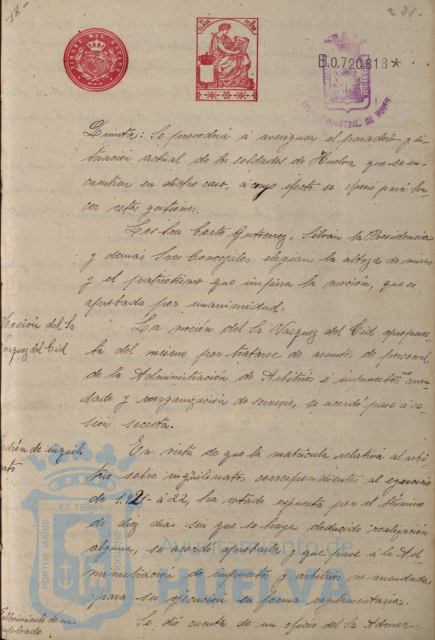 18-
281.
TIMBRE DEL ESTADO
B.0.720.813*
Quinta: Se procederá á averiguar el paradero y si-
tuación actual de los soldados de Huelva que se en-
cuentren en dicho caso, á cuyo efecto se oficie para ha-
cer estas gestiones.
Los Sres Corto Gutierrez, Silván la Presidencia
y demas Sres Concejales, elogian la alteza de miras
y el patriotismo que inspira la moción, que es
aprobada por unanimidad.
Moción del Sr
Vazquez del Cid
La moción del Sr Vazquez del Cid á propues-
ta del mismo por tratarse de asuntos de personal
de la Administración de Arbitrios é impuestos no arren-
dado y reorganización de servicio, se acordó pase á se-
sión secreta.
Padrón de inquili-
nato
En vista de que la matrícula relativa al arbi-
trio sobre inquilinatos correspondientes al ejercicio
de 1.921 á 22, ha estado expuesta por el término
de diez días sin que se haya deducido reclamación
alguna, se acordó aprobarla y que pase á la Ad-
ministración de impuestos y arbitrios no arrendados
para su ejecución en forma reglamentaria.
Fallecimiento de un
Se dió cuenta de un oficio del Sr Admor-
PORTUS MARIS
ET TERRAE
CUSTODIA
Ayuntamiento de
HUELVA